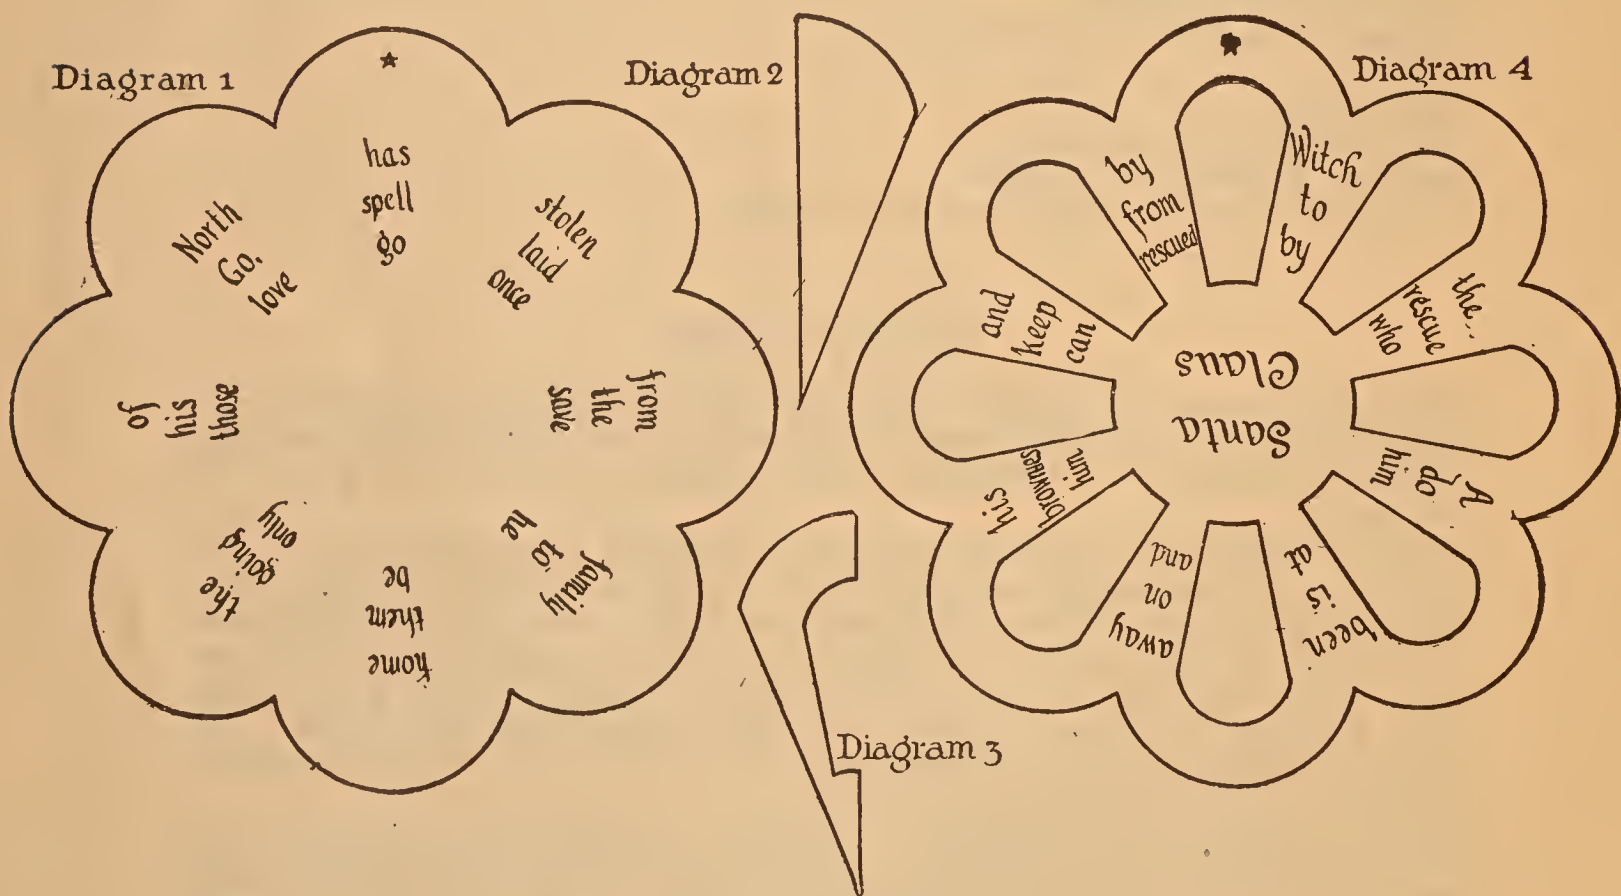 Diagram 1
has
spell
go
stolen
laid
once
from
the
save
family
to
he
home
them
be
the
going
only
those
his
of
North
Go,
love
Diagram 2
Diagram 3
Diagram 4
Witch
to
by
the
rescue
who
A
do
him
been
is
at
away
on
and
his
brownies
him
and
keep
can
by
from
rescued
Santa
Claus